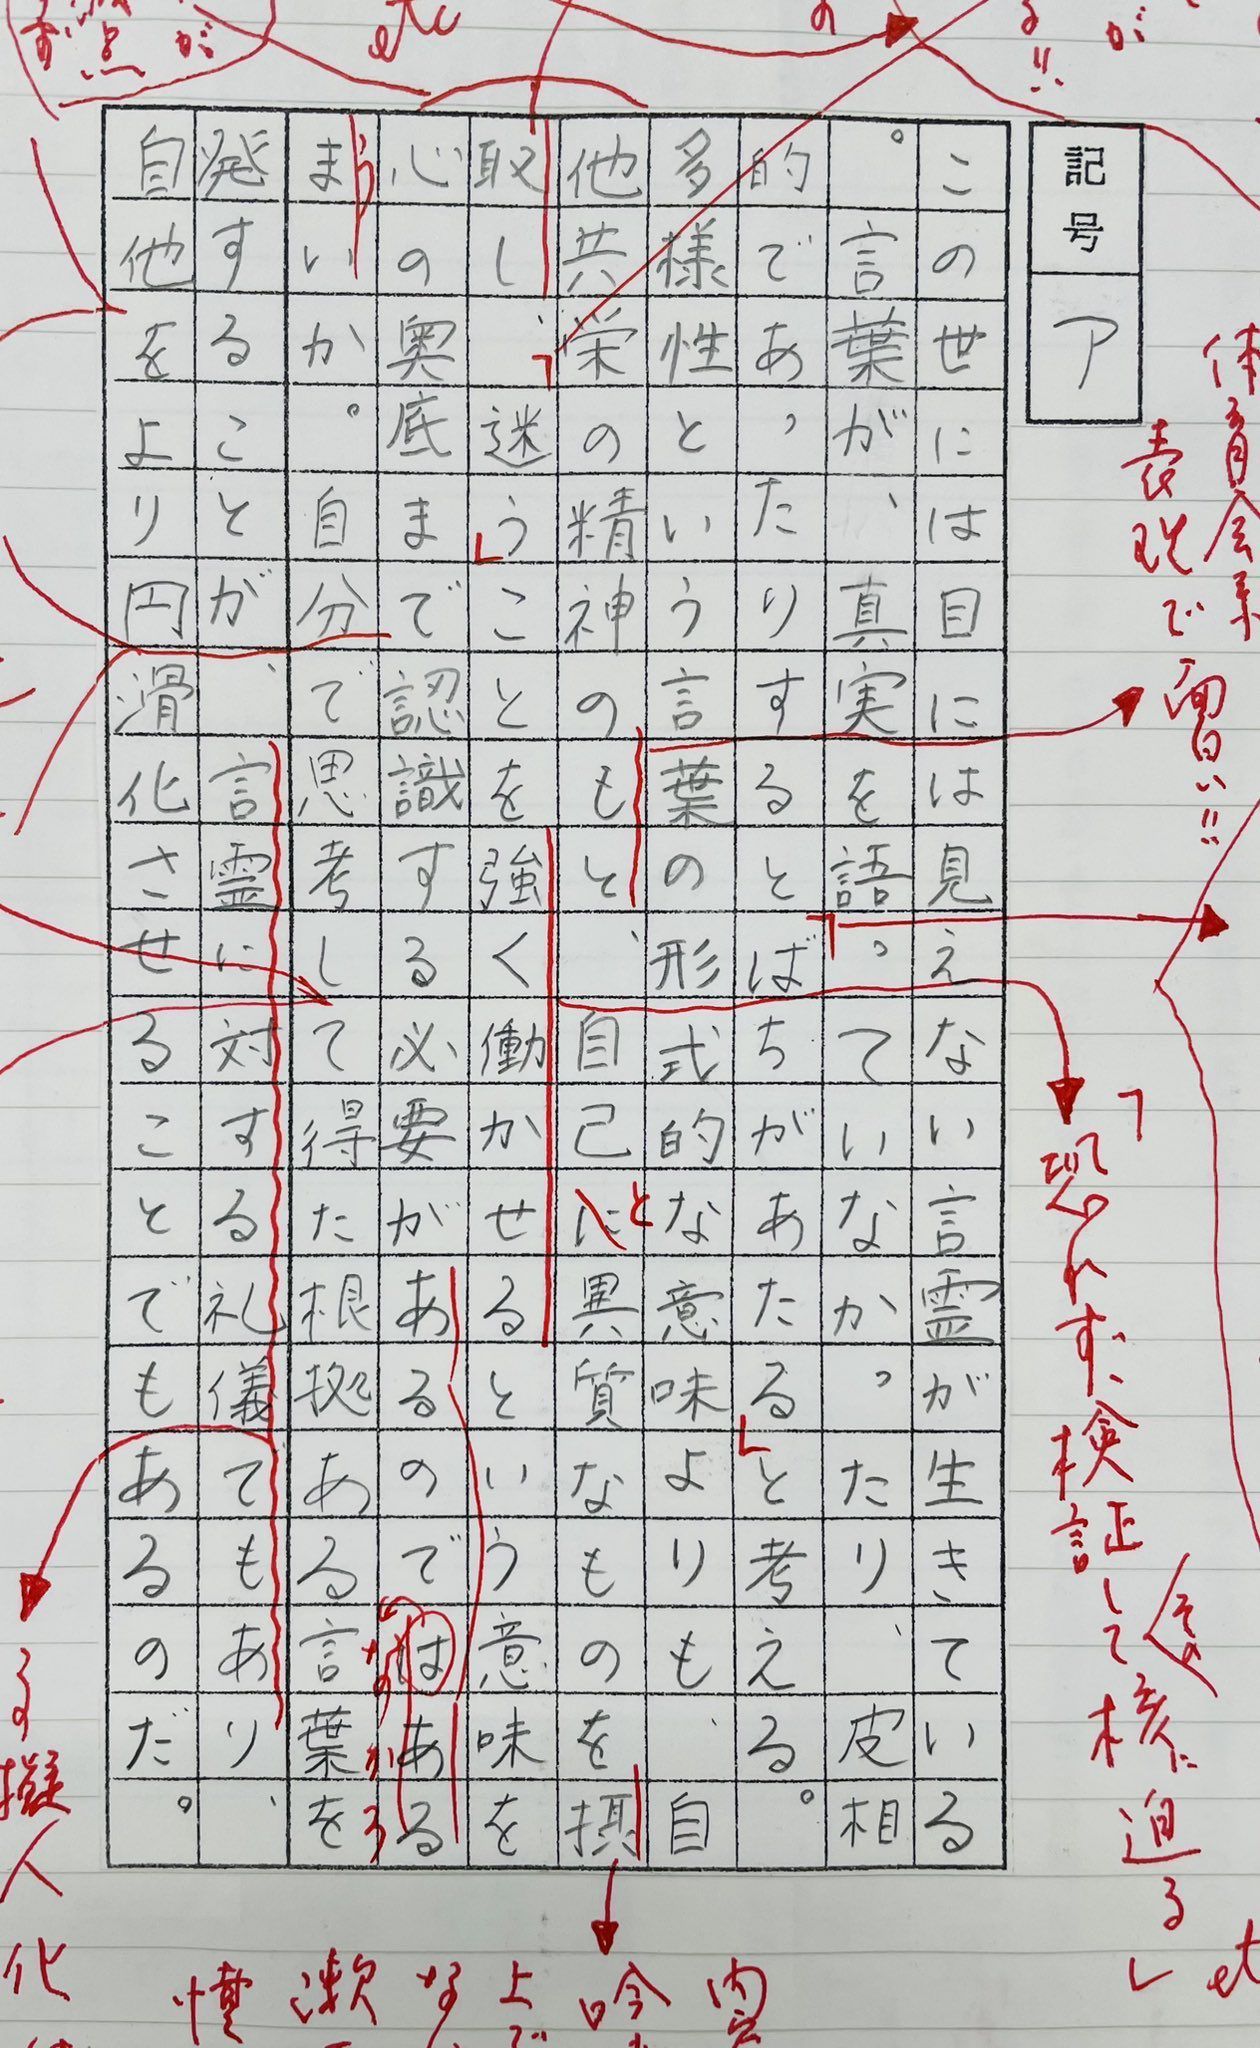 記号
ア
この世には目には見えない言霊が生きている
。言葉が、真実を語っていなかったり、皮相
的であったりするとばちがあたると考える。
多様性という言葉の形式的な意味よりも、自
他共栄の精神のもと、自己に異質なものを摂
取し、迷うことを強く働かせるという意味を
心の奥底まで認識する必要があるのではある
まいか。自分で思考しして得たた根拠ある言葉を
発することが、言霊に対する礼儀てもあり、
自他をより円滑化させることでもあるのだ。
う
と
なかろう
体育会系
表現で面白い!!
「恐れずに検証してその核に迫る」
る擬人化
上で吟
慎
etc